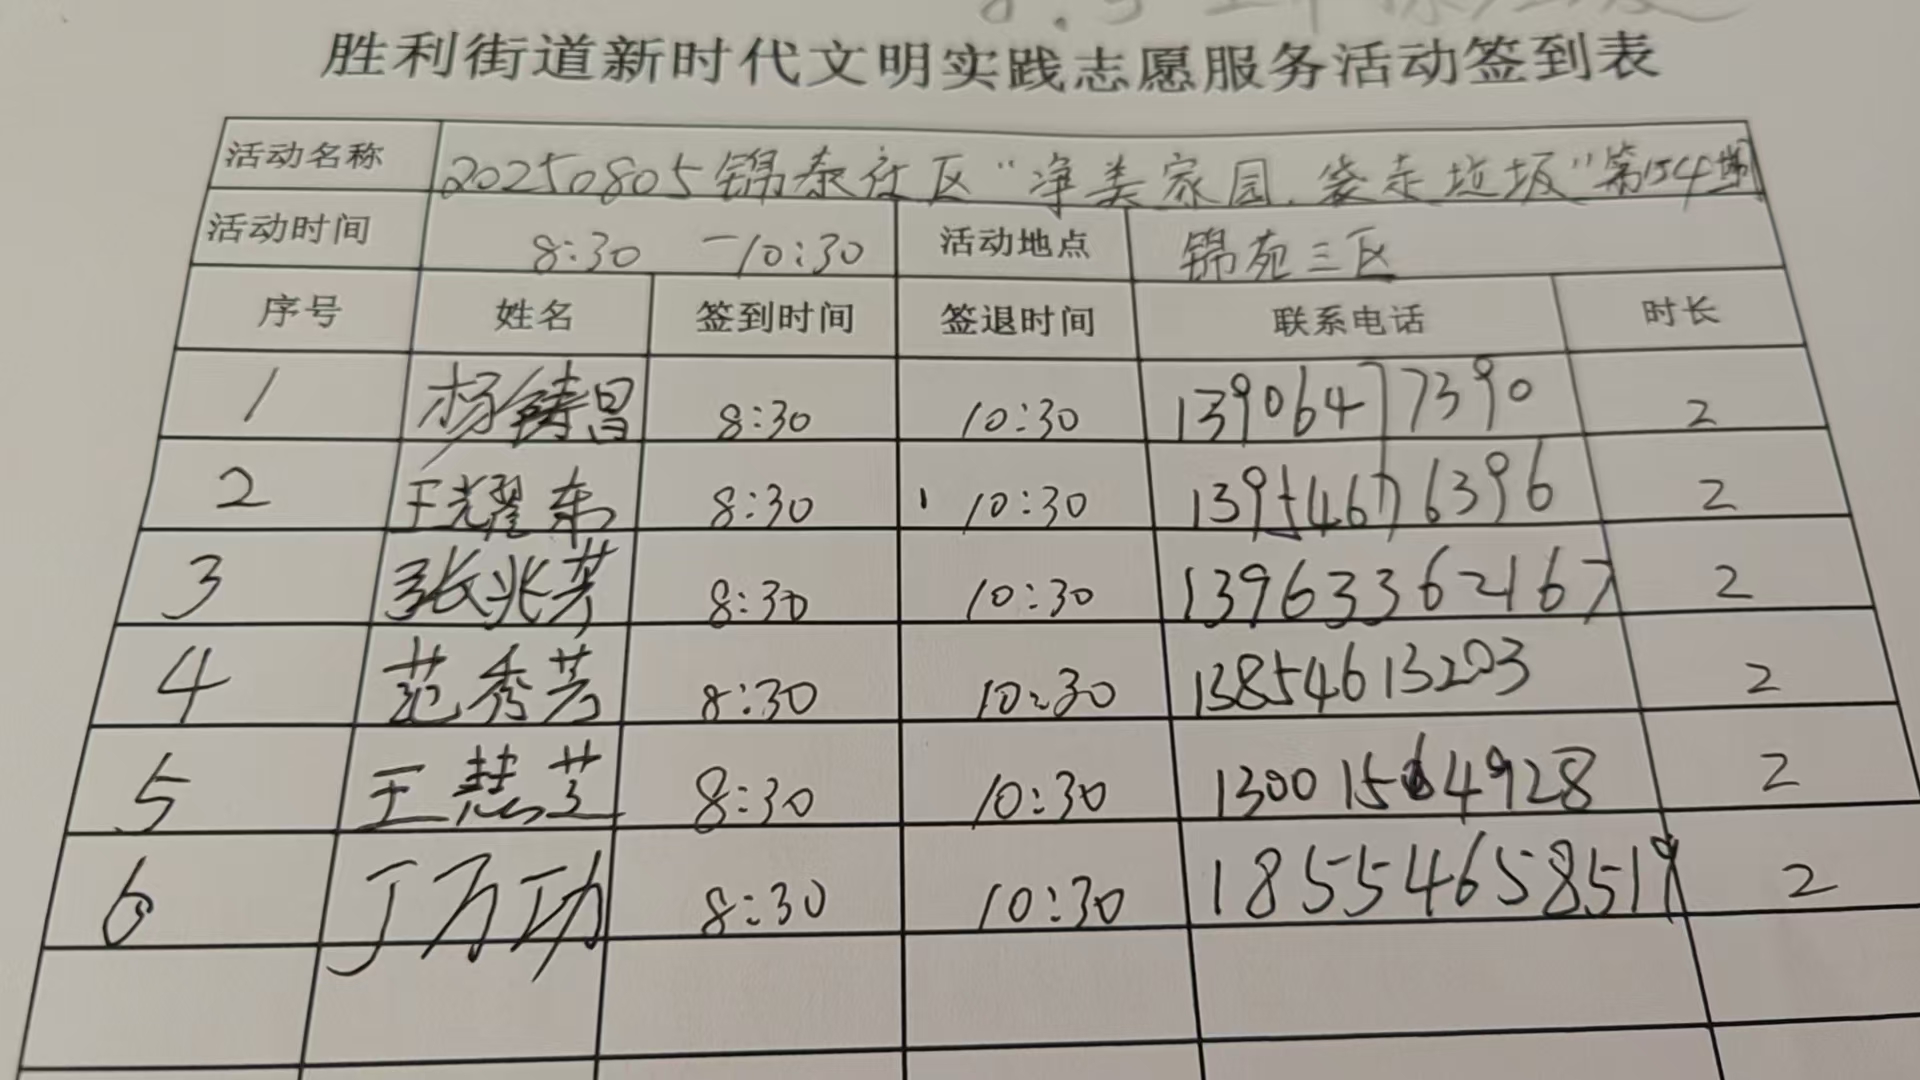 胜利街道新时代文明实践志愿服务活动签到表
活动名称 20250805锦泰社区“净美家园.袋走垃圾”第154期
活动时间 8:30 -10:30 活动地点 锦苑三区
序号 姓名 签到时间 签退时间 联系电话 时长
1 杨铸昌 8:30 10:30 13906477390 2
2 王耀东 8:30 10:30 13954676396 2
3 张兆芳 8:30 10:30 13963362167 2
4 范秀芳 8:30 10:30 13854613203 2
5 王慧芝 8:30 10:30 13001564928 2
6 丁万功 8:30 10:30 18554658519 2